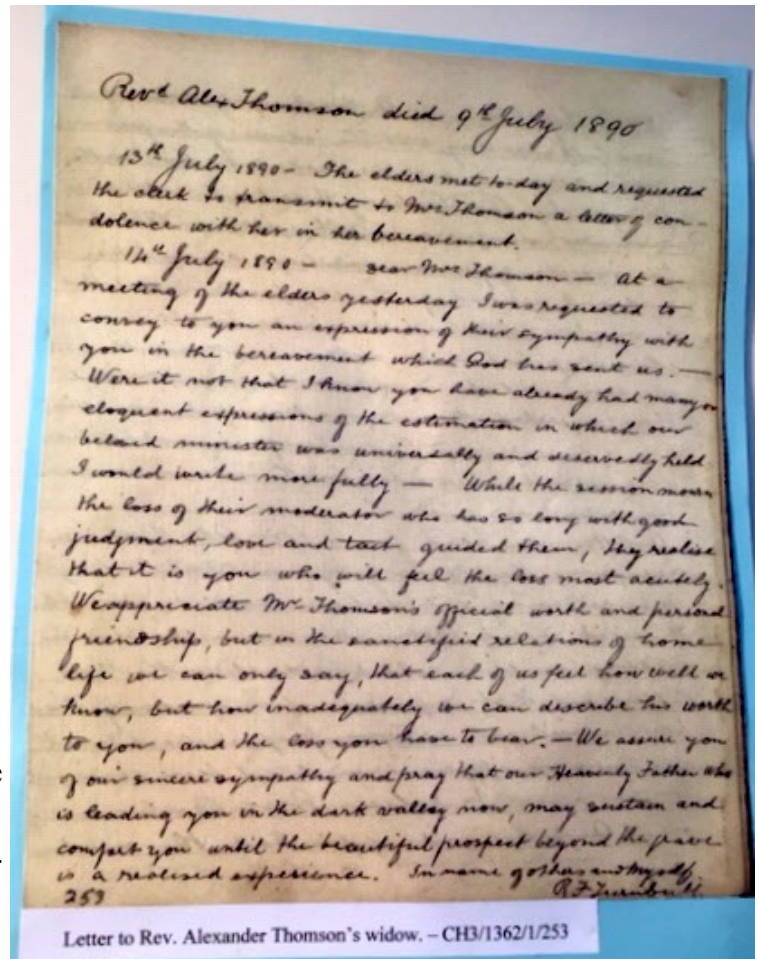 Revd Alex Thomson died 9th July 1890
13th July 1890 - The elders met to-day and requested
the clerk to transmit to Mrs Thomson a letter of con-
dolence with her in her bereavement.
14th July 1890 - Dear Mrs Thomson - At a
meeting of the elders yesterday I was requested to
convey to you an expression of their sympathy with
you in the bereavement which God has sent us. -
Were it not that I know you have already had many
eloquent expressions of the estimation in which our
beloved minister was universally and deservedly held
I would write more fully - While the session mourn
the loss of their moderator who has so long with good
judgment, love and tact guided them, they realise
that it is you who will feel the loss most acutely.
We appreciate Mr Thomson's official worth and personal
friendship, but in the sanctified relations of home
life we can only say, that each of us feel how well we
know, but how inadequately we can describe his worth
to you, and the loss you have to bear. - We assure you
of our sincere sympathy and pray that our Heavenly Father who
is leading you in the dark valley now, may sustain and
comfort you until the beautiful prospect beyond the grave
is a realised experience. In name of others and myself.
253 R. F. Turnbull.
Letter to Rev. Alexander Thomson's widow. – CH3/1362/1/253